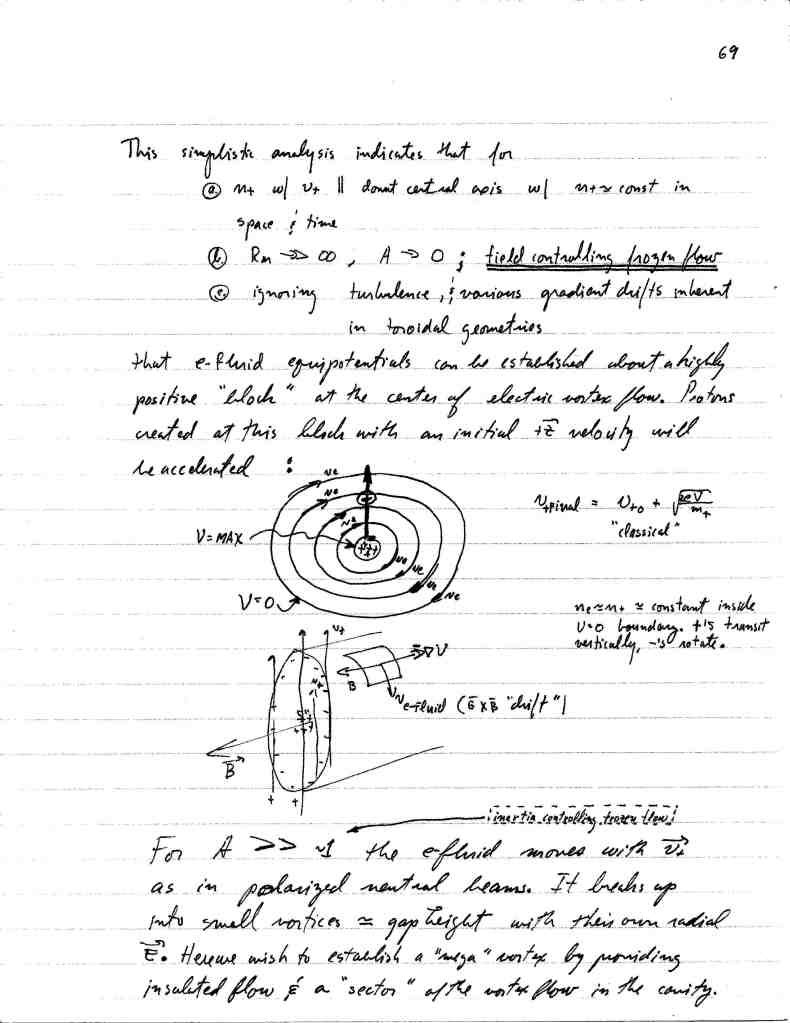 69
This simplistic analysis indicates that for
ⓐ n+ w/ v+ || donut central axis w/ n+ ≈ const in
space & time
ⓑ Rm → ∞, A → 0 ; field controlling frozen flow
ⓒ ignoring turbulence, & various gradient drifts inherent
in toroidal geometries
that e-fluid equipotentials can be established about a highly
positive "block" at the center of electric vortex flow. Protons
created at this block with an initial +z velocity will
be accelerated :
v+final = v+o + √2eV/m+
"classical"
V=MAX
V=0
ne ≈ n+ ≈ constant inside
V=0 boundary. +'s transit
vertically, -'s rotate.
v+
B
e-fluid (E X B "drift")
B
inertia controlling frozen flow
For A >> ~1 the e-fluid moves with v+
as in polarized neutral beams. It breaks up
into small vortices ≈ gap height with their own radial
E. Here we wish to establish a "mega" vortex by providing
insulated flow & a "sector" of the vortex flow in the cavity.